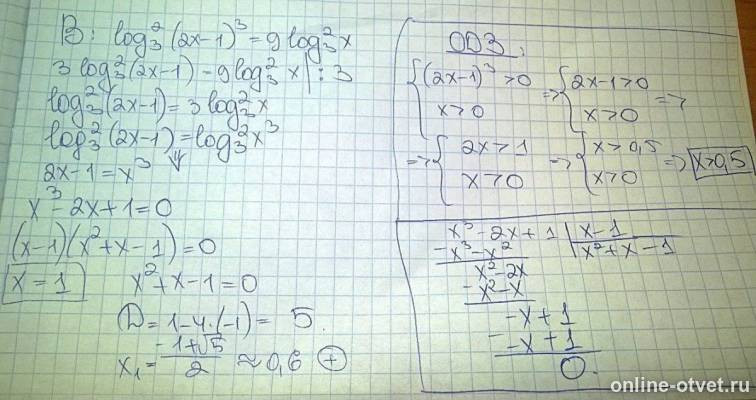 В: log₃²(2x-1)³ = 9 log₃² x
3 log₃²(2x-1) - 9 log₃² x | : 3
log₃²(2x-1) = 3 log₃² x
log₃²(2x-1) = log₃² x³
2x-1 = x³ ⇓
x³ - 2x + 1 = 0
(x-1)(x² + x - 1) = 0
x = 1   x² + x - 1 = 0
D = 1 - 4·(-1) = 5.
x₁ = (-1+√5)/2 ≈ 0,6 ⊕
ОДЗ:
{ (2x-1)³ > 0 => { 2x-1 > 0
{ x > 0 { x > 0 =>
=> { 2x > 1 => { x > 0,5 => x > 0,5
{ x > 0 { x > 0
x³ - 2x + 1 | x - 1
- x³ - x² | x² + x - 1
x² - 2x
- x² - x
-x + 1
- -x + 1
0.
online-otvet.ru